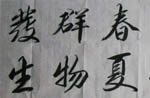 春夏
群物
發生